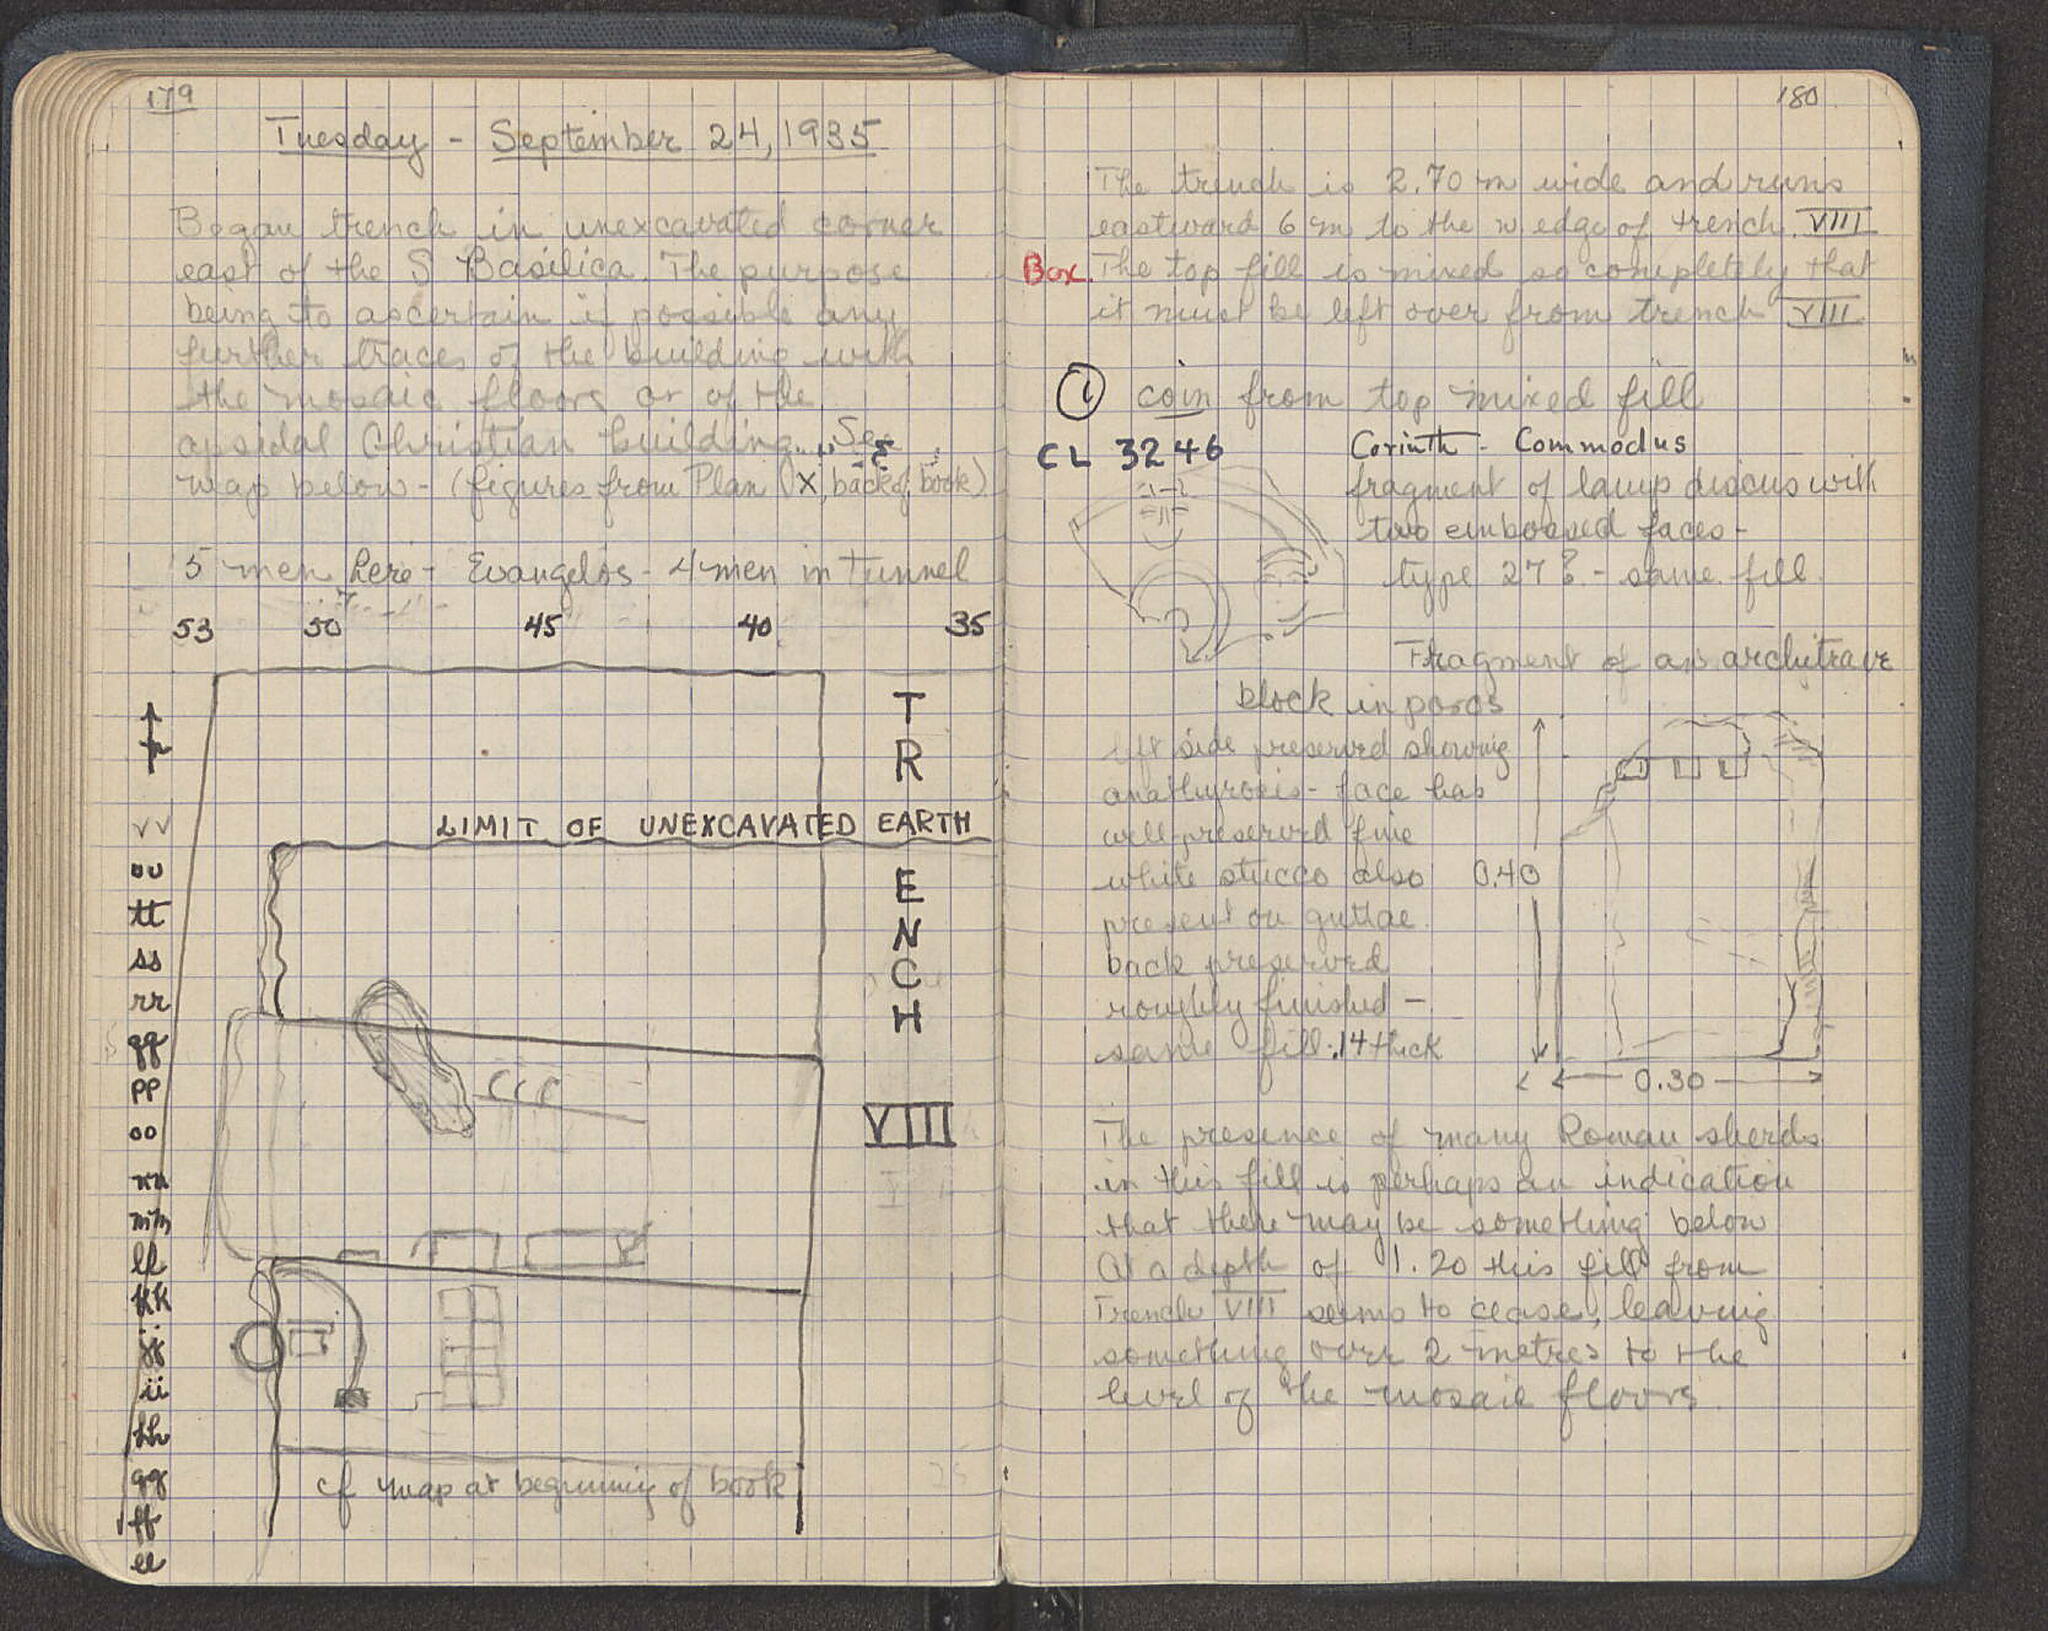 179
Tuesday - September 24, 1935
Began trench in unexcavated corner
east of the S Basilica. The purpose
being to ascertain if possible any
further traces of the building with
the mosaic floors or of the
apsidal Christian building. See
map below - (figures from Plan X, back of book)
5 men here - Evangelos - 4 men in tunnel
53 50 45 40 35
TRENCH
VIII
LIMIT OF UNEXCAVATED EARTH
vv
uu
tt
ss
rr
qq
pp
oo
nn
mm
ll
kk
jj
ii
hh
gg
ff
ee
cf map at beginning of book
180
The trench is 2.70 m wide and runs
eastward 6 m to the w edge of trench VIII
Box. The top fill is mixed so completely that
it must be left over from trench VIII
1 coin from top mixed fill
Corinth - Commodus
CL 3246
fragment of lamp discus with
two embossed faces -
type 27? - same fill
Fragment of an architrave
block in poros
left side preserved showing
anathyrosis - face has
well preserved fine
white stucco also
present on guttae
back preserved
roughly finished -
same fill .14 thick
0.40
0.30
The presence of many Roman sherds
in this fill is perhaps an indication
that there may be something below
At a depth of 1.20 this fill from
Trench VIII seems to cease, leaving
something over 2 metres to the
level of the mosaic floors.